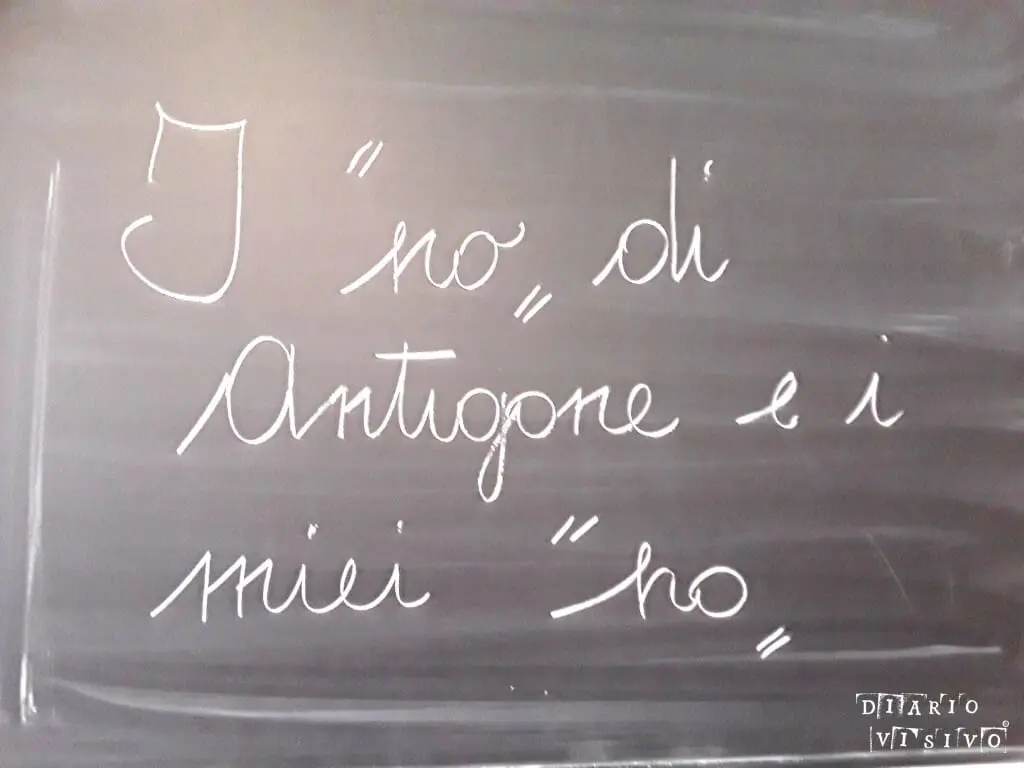 I "no" di
Antigone e i
miei "no"
DIARIO
VISIVO